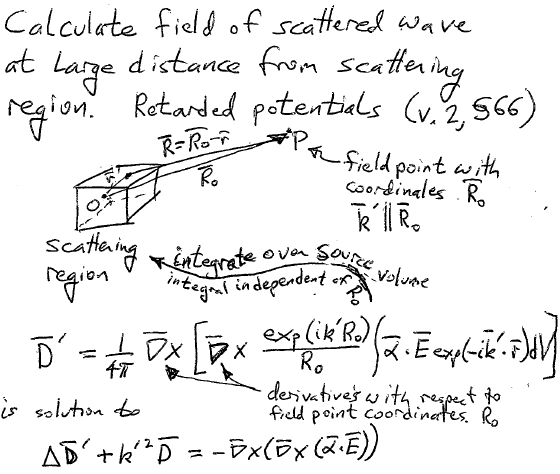 Calculate field of scattered wave
at Large distance from scattering
region. Retarded potentials (v. 2, §66)
R̄=R̄₀-r̄
P
field point with
coordinates R̄₀
k̄′ ∥ R̄₀
R̄₀
r̄
O
scattering
region
integrate over source volume
integral independent of R₀
D̄′ = 1/4π ∇̄× [∇̄× exp(ik′R₀)/R₀ ∫ᾱ·Ē exp(-ik̄′·r̄)dV]
derivatives with respect to
field point coordinates R₀
is solution to
ΔD̄′ + k′² D̄ = -∇̄×(∇̄×(ᾱ·Ē))